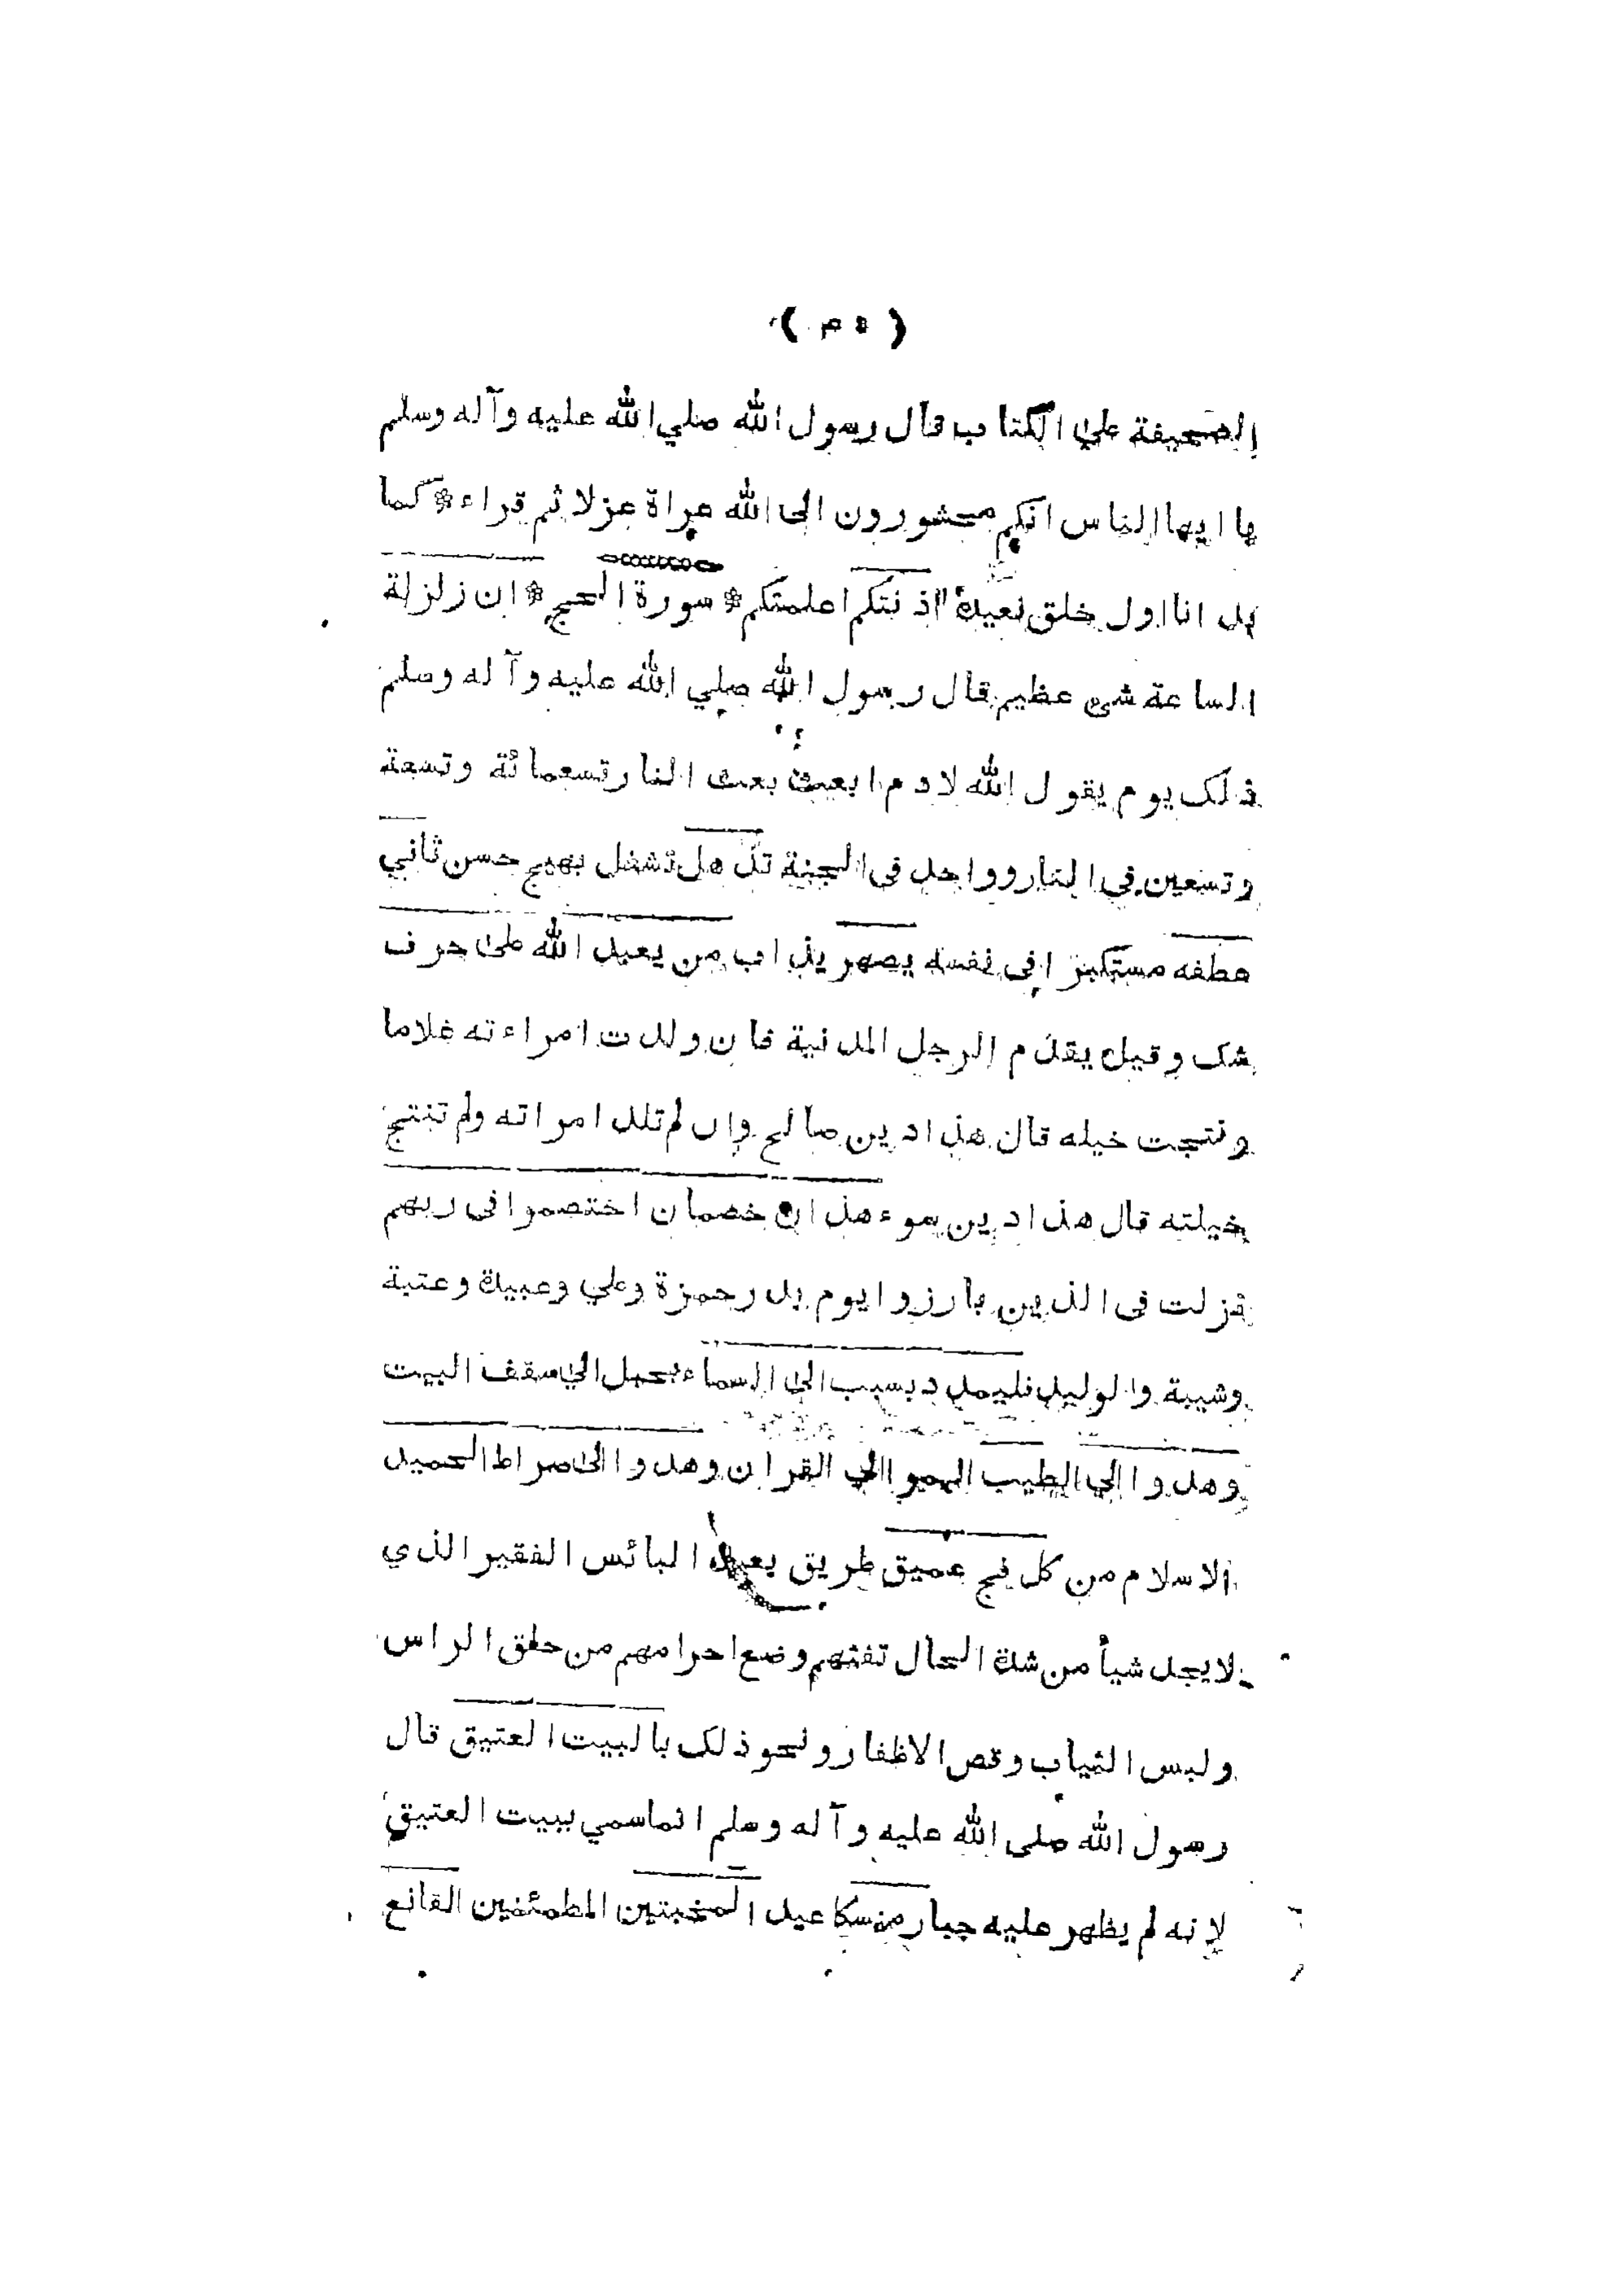 ( ٥٣ )
الصحيفة علي الكتاب قال رسول الله صلي الله عليه وآله وسلم
يا ايها الناس انكم محشورون الى الله عراة عزلا ثم قراء * كما
بدانا اول خلق نعيده اذنتكم اعلمتكم * سورة الحج * ان زلزلة
الساعة شي عظيم قال رسول الله صلي الله عليه وآله وسلم
ذلك يوم يقول الله لادم ابعث بعث النار تسعمائة وتسعة
وتسعين في النار وواحد في الجنة تذهل تشغل بهيج حسن ثاني
عطفه مستكبرا في نفسه يصهر يذاب من يعبد الله على حرف
شك وقيل يقدم الرجل المدنية فان ولدت امراءته غلاما
ونتجت خيله قال هذا دين صالح وان لم تلد امراته ولم تنتج
خيلته قال هذا دين سوء هذان خصمان اختصموا في ربهم
نزلت في الذين بارزوا يوم بدر حمزة وعلي وعبيدة وعتبة
وشيبة والوليد فليمدد بسبب الى السماء بحبل الي سقف البيت
وهدوا الي الطيب الهموا الي القران وهدوا الى صراط الحميد
الاسلام من كل فج عميق طريق بعيد البائس الفقير الذي
لايجد شيأ من شدة الحال تفثهم وضع احرامهم من حلق الراس
ولبس الثياب وقص الاظفار ونحو ذلك بالبيت العتيق قال
رسول الله صلى الله عليه وآله وسلم انماسمي ببيت العتيق
لانه لم يظهر عليه جبار منسكا عيد المخبتين المطمئنين القانع